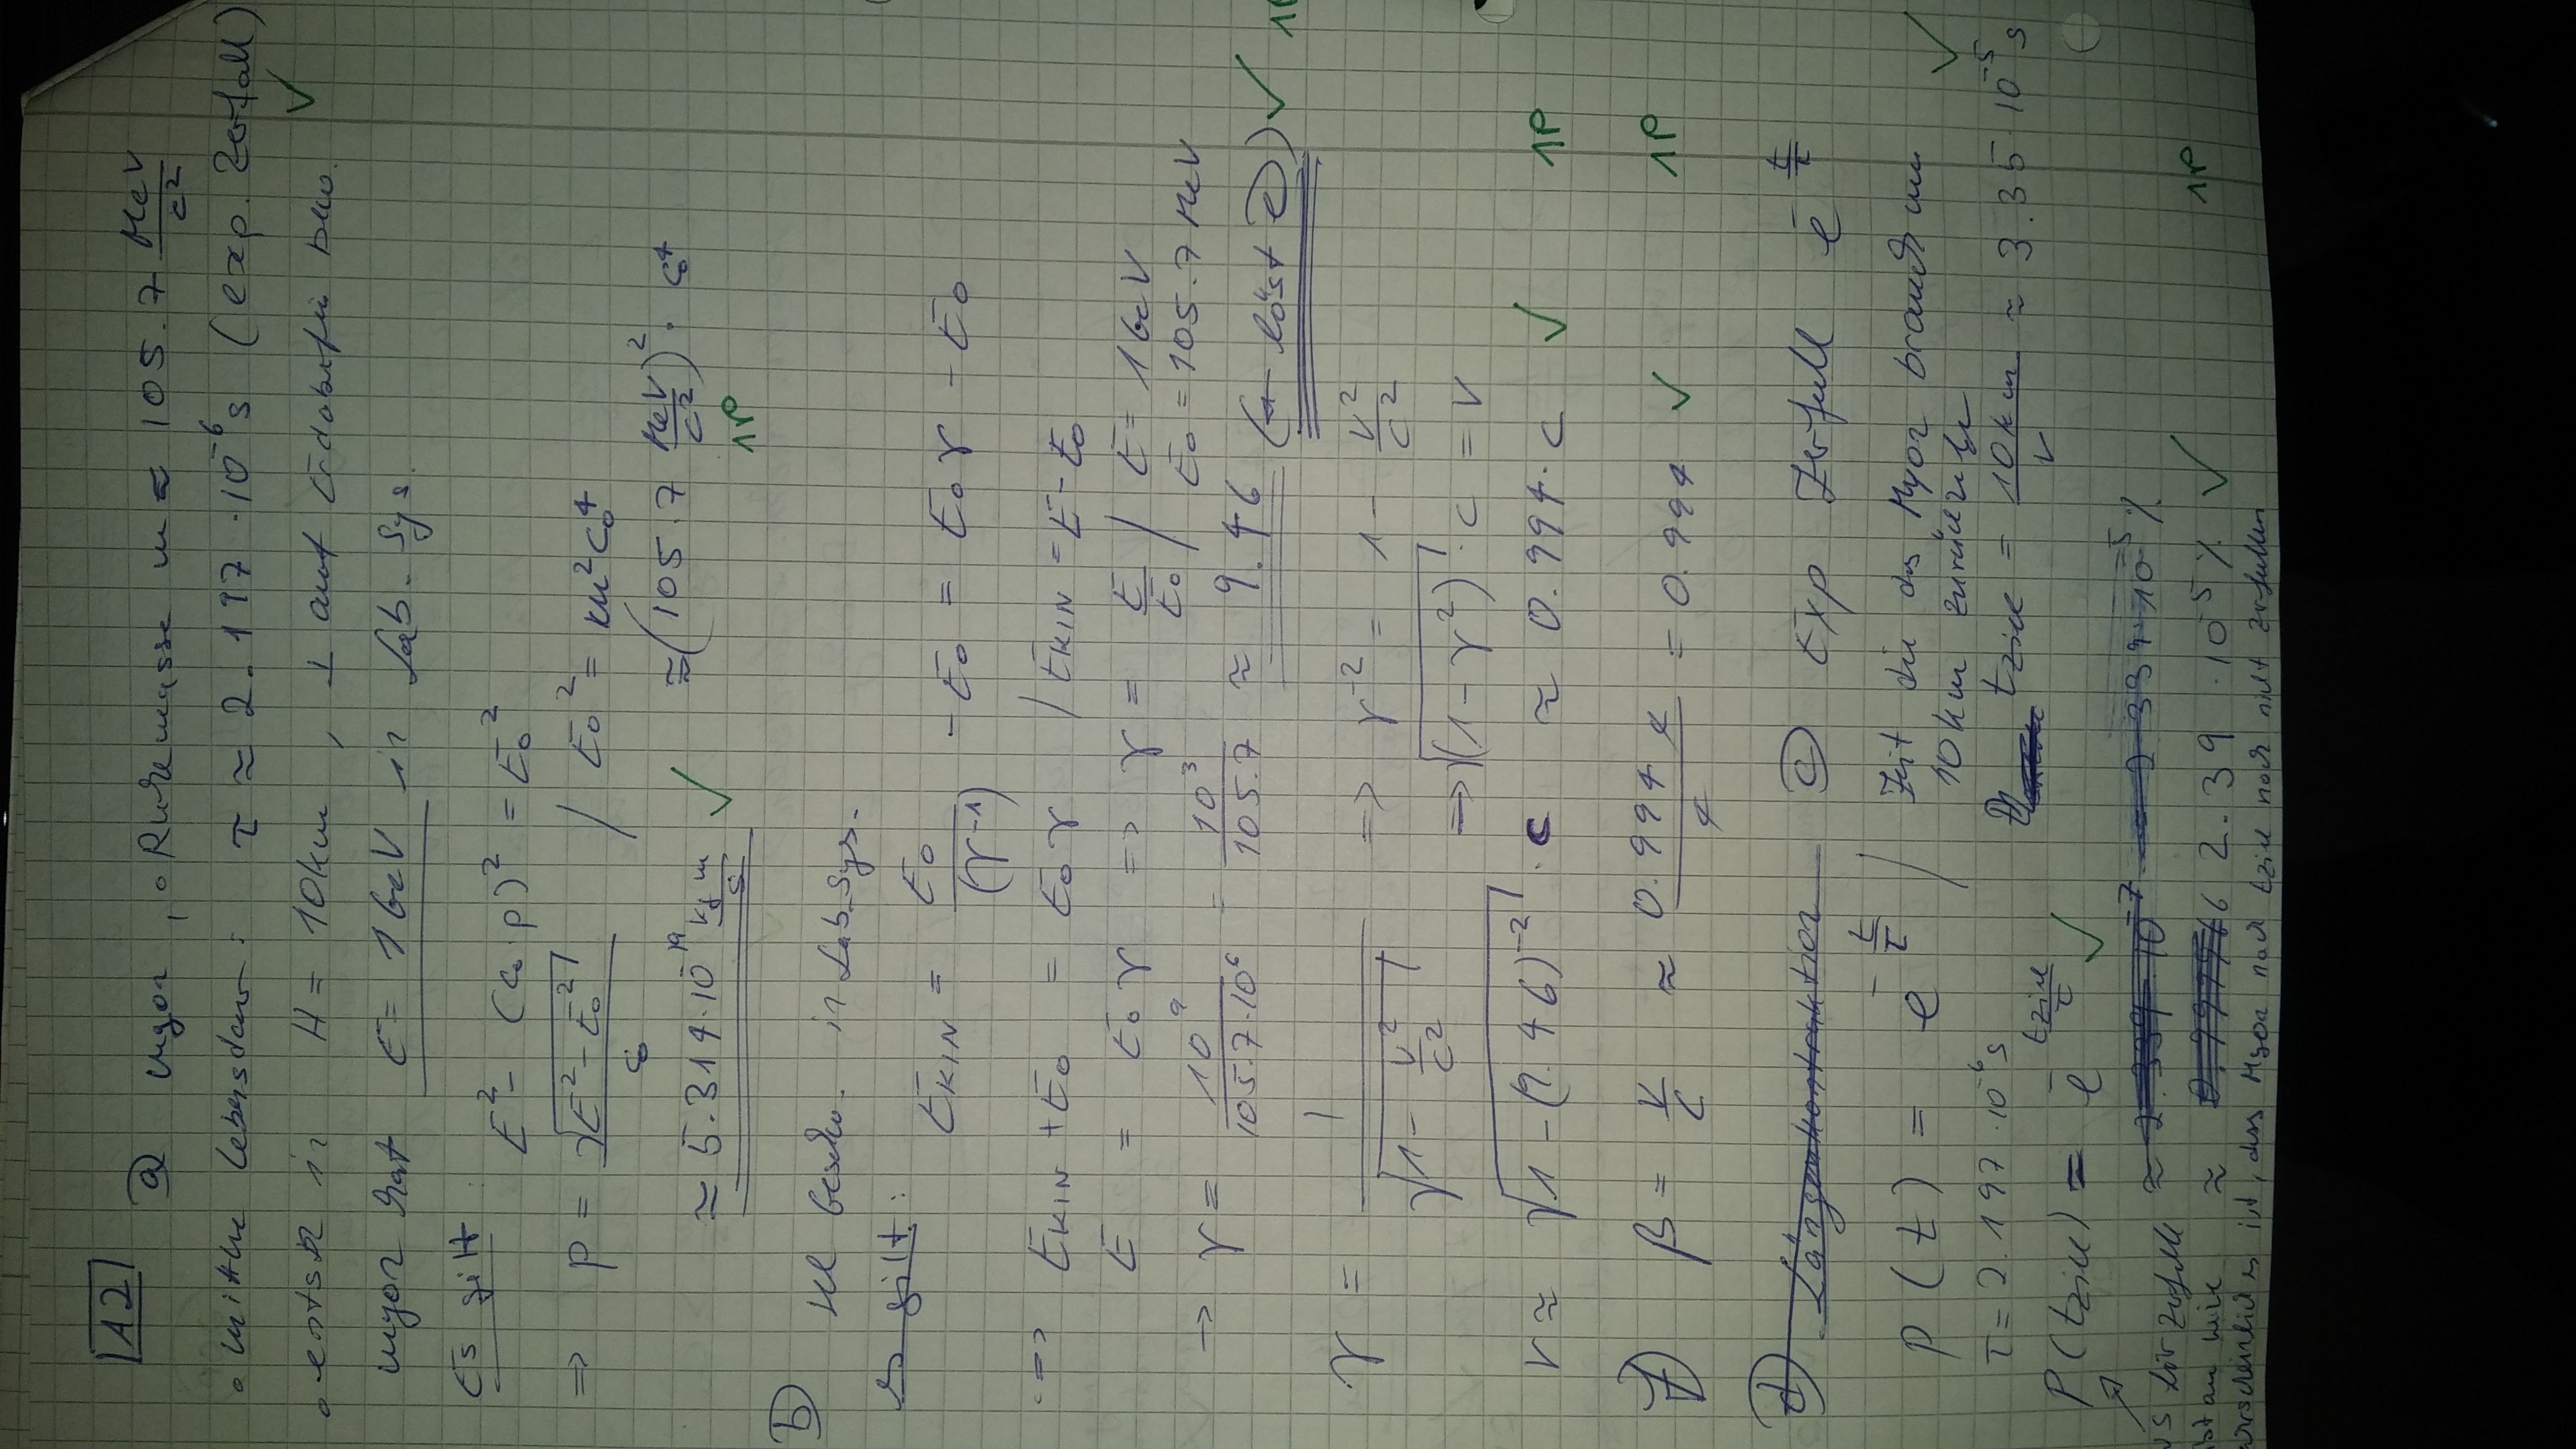 A2
a) Myon , • Ruhemasse m ≈ 105.7 MeV/c²
• mittlere Lebensdauer: τ ≈ 2.197 · 10⁻⁶ s (exp. Zerfall) ✓
• entsteht in H = 10 km , ⊥ auf Erdoberfl. bew.
Myon hat E = 1 GeV in Lab-Sys.
Es gilt:
E² - (c₀ · p)² = E₀²
⇒ p = √(E² - E₀²) / c₀ / E₀² = m² c₀⁴
≈ (105.7 MeV/c²)² · c₀⁴
≈ 5.314 · 10⁻¹⁹ kg m/s ✓ 1P
b)
rel Geschw. in Lab-Sys.
Es gilt:
E_KIN = E₀/(γ⁻¹) - E₀ = E₀ γ - E₀
<=> E_KIN + E₀ = E₀ γ / E_KIN = E - E₀
E = E₀ γ => γ = E/E₀ / E = 1 GeV
E₀ = 105.7 MeV
→ γ = 10⁹/(105.7 · 10⁶) = 10³/105.7 ≈ 9.46 (← löst e) ✓
γ = 1/√(1 - v²/c²) => γ⁻² = 1 - v²/c²
=> √(1 - γ²) · c = v
v ≈ √(1 - (9.46)⁻²) · c ≈ 0.994 · c ✓ 1P
f) β = v/c ≈ 0.994 c/c = 0.994 ✓ 1P
d) Längenkontraktion c) Exp Zerfall e^(-t/τ)
p(t) = e^(-t/τ) / Zeit die das Myon braucht um
10km zurückzulegen ✓
τ = 2.197 · 10⁻⁶ s
tziel = 10km/v ≈ 3.35 · 10⁻⁵ s
P(tziel) = e^(-tziel/τ) ✓
≈ 2.339 · 10⁻⁷ = 2.339 · 10⁻⁵ %
≈ 2.39 · 10⁻⁵ % ✓ 1P
ist, dass Myon nach tziel noch nicht zerfallen